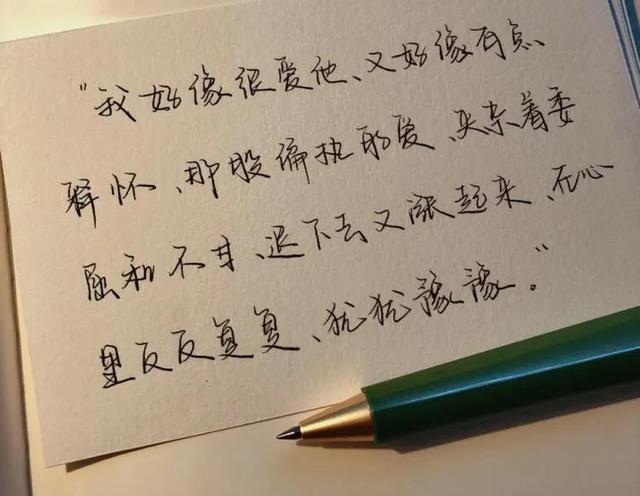 “我好像很爱他、又好像有点
释怀、那股偏执的爱、夹杂着委
屈和不甘、退下去又涨起来、在心
里反反复复、犹犹豫豫。”